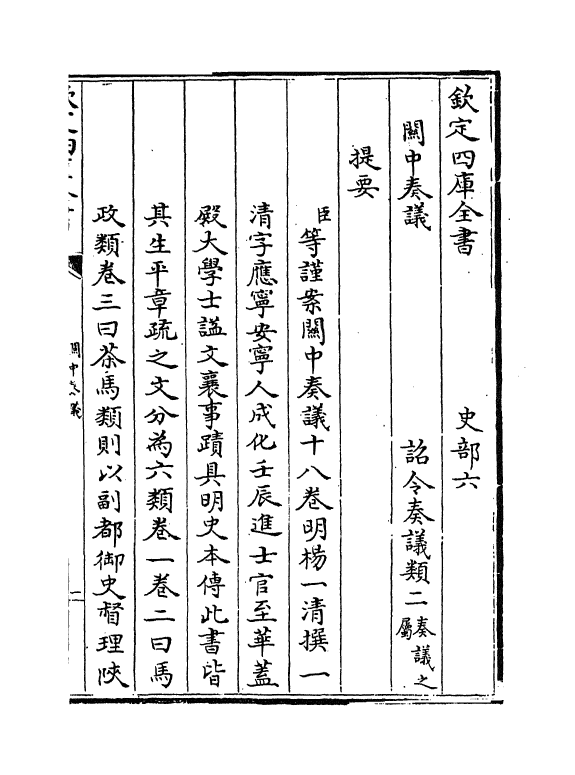 欽定四庫全書　史部六
關中奏議　詔令奏議類二奏議之屬
提要
臣等謹案關中奏議十八卷明楊一清撰一
清字應寧安寧人成化壬辰進士官至華蓋
殿大學士諡文襄事蹟具明史本傳此書皆
其生平章疏之文分為六類卷一卷二曰馬
政類卷三曰茶馬類則以副都御史督理陜
關中奏議
一